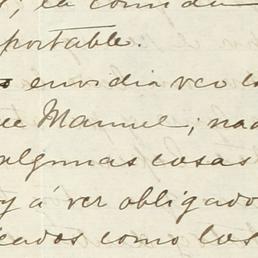 la comida
portable.
envidia veo la
ue Manuel; nad
algunas cosas
y á ver obligado
eados como los